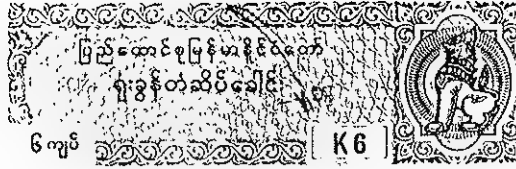 ပြည်ထောင်စုမြန်မာနိုင်ငံတော်
ရုံးခွန်တံဆိပ်ခေါင်း
၆ကျပ်
K6